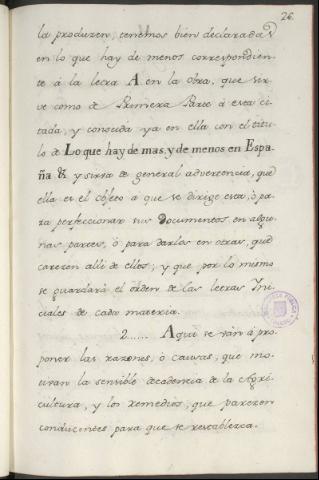 26.
la produzen, tenemos bien declarada
en lo que hay de menos correspondien-
te á la letra A en la obra, que sir-
ve como de Primera Parte á esta ci-
tada, y conocida ya en ella con el titu-
lo de Lo que hay de mas, y de menos en Espa-
ña & y sirva de general advertencia, que
ella es el objeto á que se dirige esta, ó pa-
ra perfeccionar sus Documentos en algu-
nas partes, ó para darlos en otras, que
carecen alli de ellos; y que por lo mismo
se guardará el orden de las letras Ini-
ciales de cada materia.
2...... Aqui se ván á pro-
poner las razones, ó causas, que mo-
tivan la sensible decadencia de la Agri-
cultura, y los remedios, que parecen
conducentes para que se restablezca.